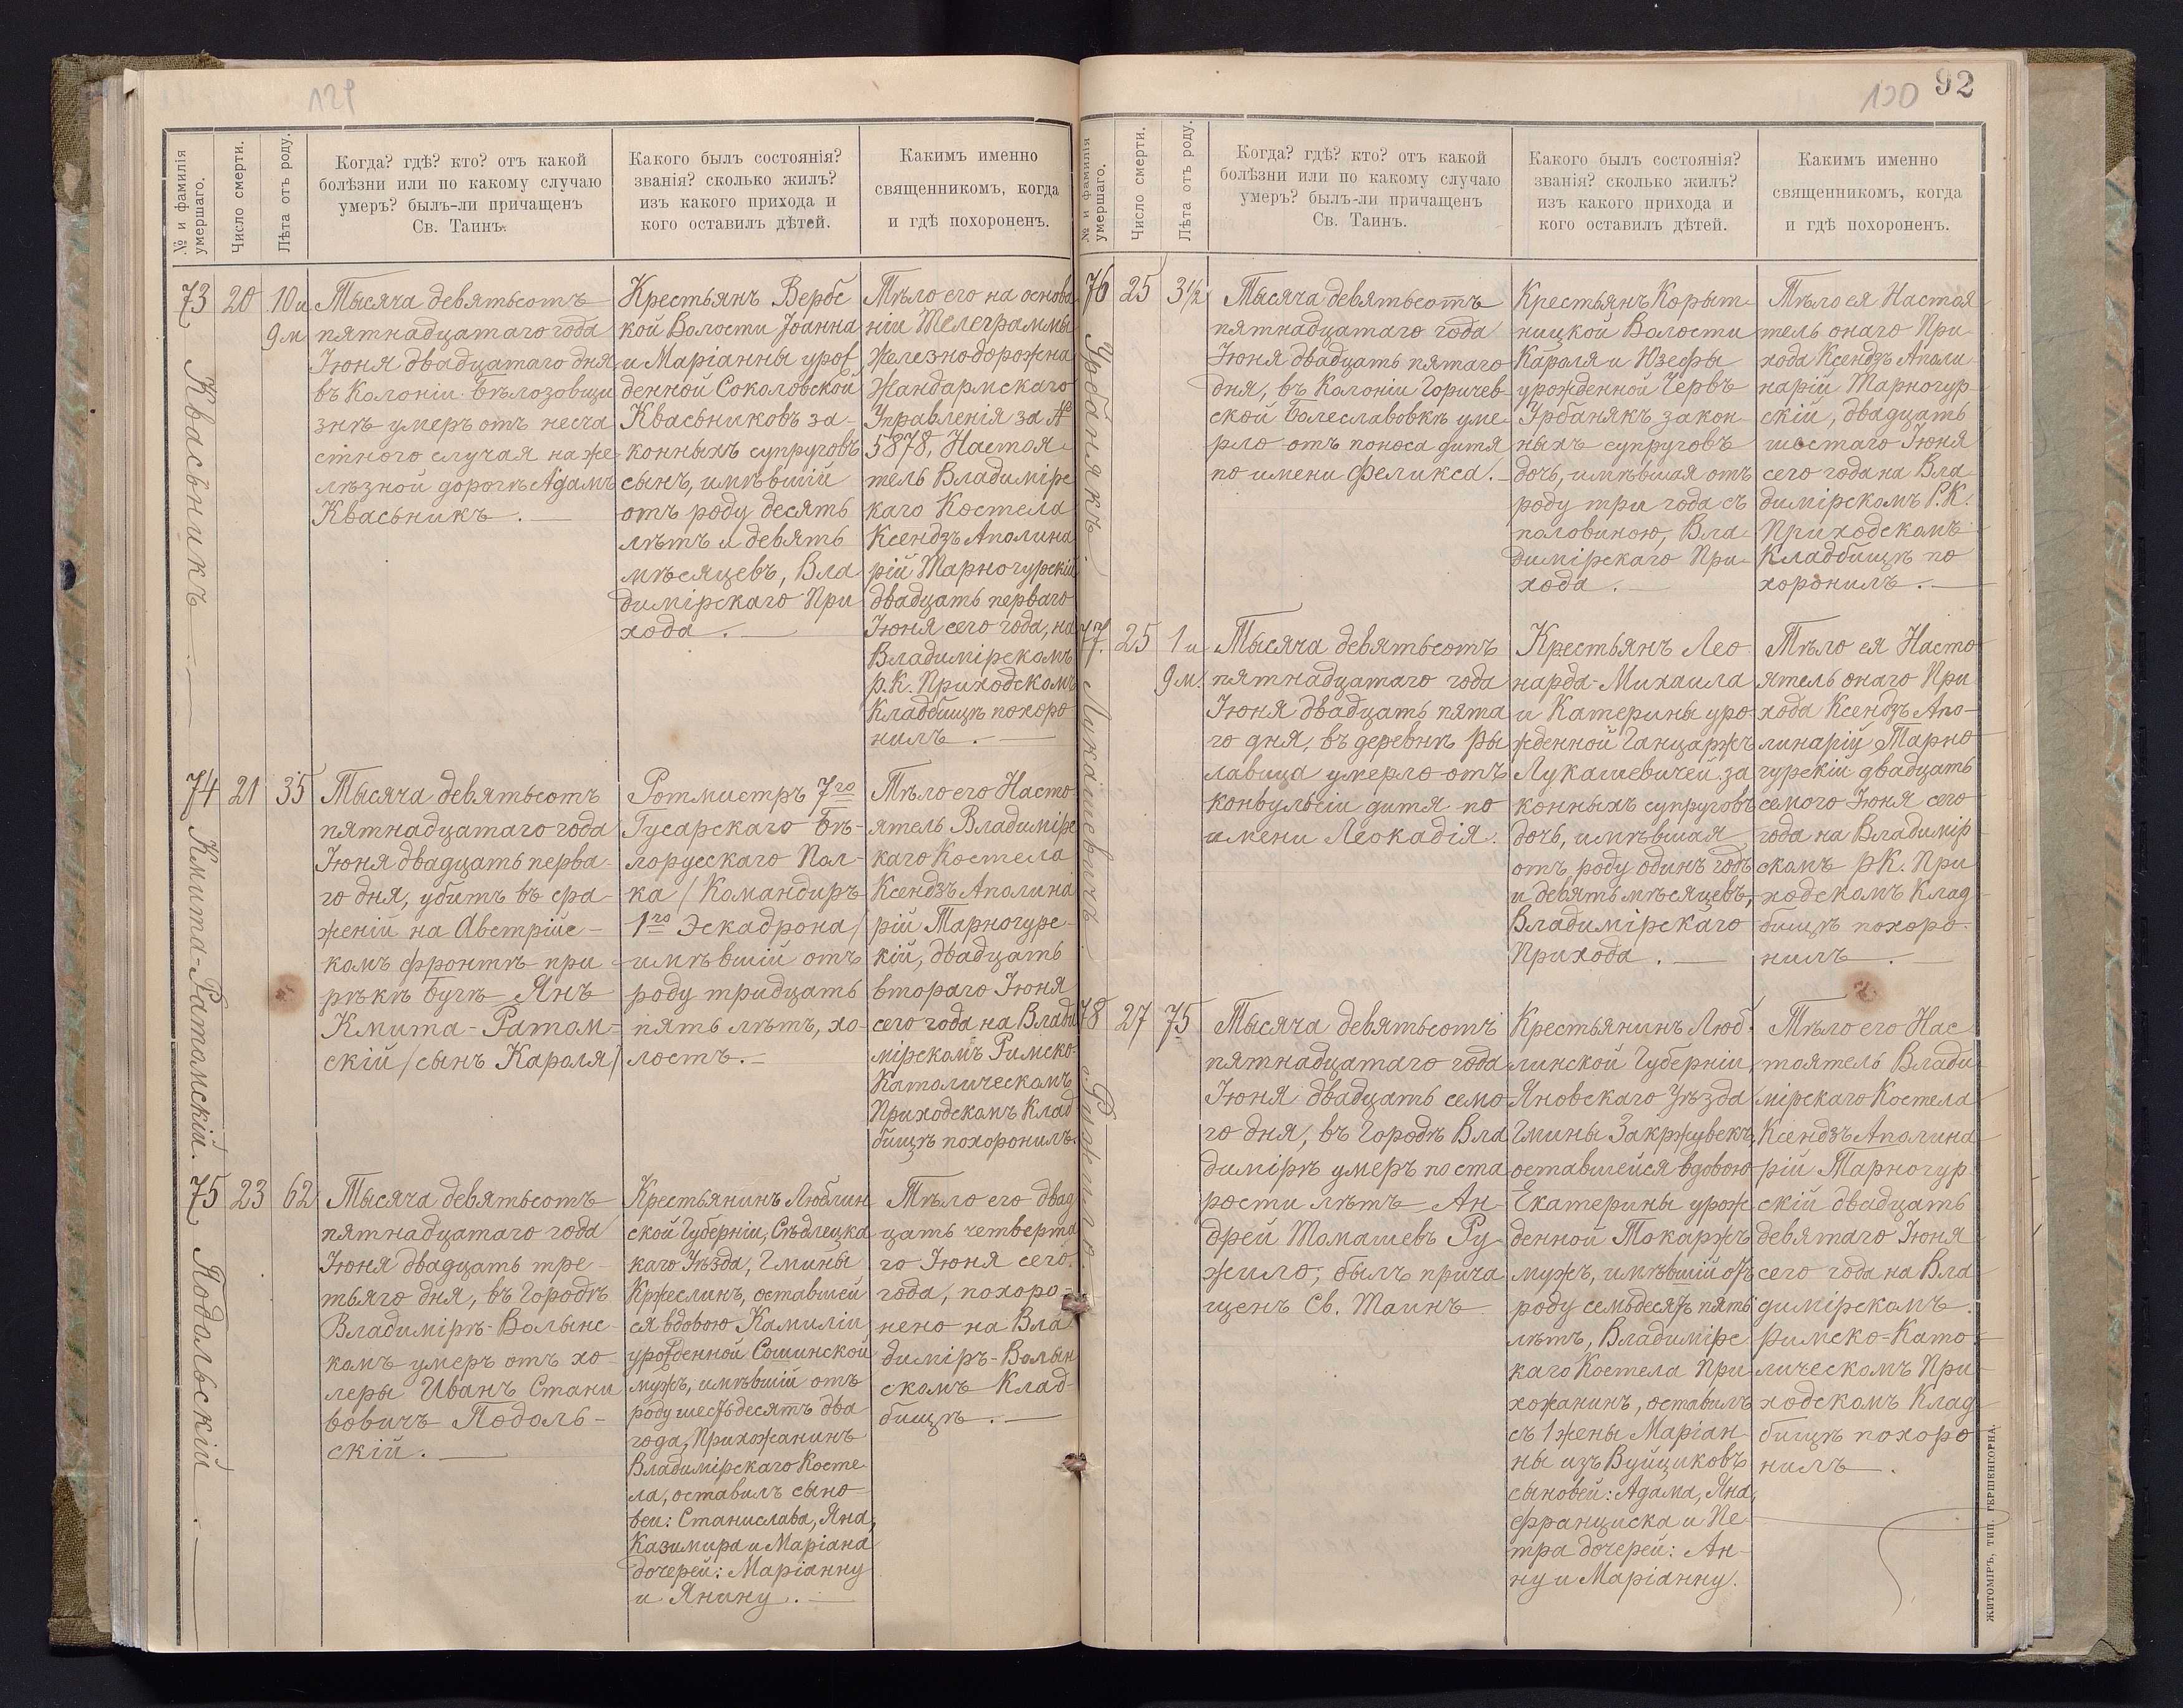 129
№ и фамилія
умершаго.
Число смерти.
Лѣта отъ роду.
Когда? гдѣ? кто? отъ какой
болѣзни или по какому случаю
умеръ? былъ-ли причащенъ
Св. Таинъ.
Какого былъ состоянія?
званія? сколько жилъ?
изъ какого прихода и
кого оставилъ дѣтей.
Какимъ именно
священникомъ, когда
и гдѣ похороненъ.
73
Квасьникъ.
20
10 и
9 м
Тысяча девятьсотъ
пятнадцатаго года
Іюня двадцатаго дня,
въ Колоніи Бѣлозовщи
знѣ умеръ отъ несча
стного случая на же
лѣзной дорогѣ Адамъ
Квасьникъ.
Крестьянъ Вербс
кой Волости Іоанна
и Маріанны урож
денной Соколовской
Квасьниковъ за-
конныхъ супруговъ
сынъ, имѣвшій
отъ роду десять
лѣтъ и девять
мѣсяцевъ, Вла
димірскаго При
хода.
Тѣло его на основа
ніи Телеграммы
Железнодорожна
Жандармскаго
Управленія за №
5878, Настоя
тель Владимірс
каго Костела
Ксендзъ Аполина
рій Тарногурскій
двадцать перваго
Іюня сего года, на
Владимірскомъ
р.К. Приходскомъ
Кладбищѣ похоро
нилъ.
74
Кмита-Ратомскій.
21
35
Тысяча девятьсотъ
пятнадцатаго года
Іюня двадцать перва-
го дня, убитъ въ сра-
женій на Австрійс-
комъ фронтѣ при
рѣкѣ Бугѣ Янъ
Кмита-Ратом-
скій /сынъ Кароля/
Ротмистръ 7го
Гусарскаго Бѣ-
лорусскаго Пол-
ка /Командиръ
1го Эскадрона/
имѣвшій отъ
роду тридцать
пять лѣтъ, хо-
лостъ.
Тѣло его Насто
ятель Владимірс
каго Костела
Ксендзъ Аполина
рій Тарногурс-
кій, двадцать
втораго Іюня
сего года на Влади
мірскомъ Римско-
Католическомъ
Приходскомъ Клад
бищѣ похоронилъ.
75
Подольскій.
23
62
Тысяча девятьсотъ
пятнадцатаго года
Іюня двадцать тре-
тьяго дня, въ Городѣ
Владимірѣ-Волынс
комъ умеръ отъ хо-
леры Иванъ Стани
вовичъ Подоль-
скій.
Крестьянинъ Люблин
ской Губерніи, Сѣдлецка
каго Уѣзда, Гмины
Кржеслинъ, оставшей
ся вдовою Камиліи
урожденной Сошинской
мужъ, имѣвшій отъ
роду шестьдесятъ два
года, Прихожанинъ
Владимірскаго Косте
ла, оставилъ сыно-
вей: Станислава, Яна,
Казимира и Маріана
дочерей: Маріанну
и Янину.
Тѣло его двад
цать четверта
го Іюня сего
года, похоро-
нено на Вла
диміръ-Волын
скомъ Клад-
бищѣ.
130
92
№ и фамилія
умершаго.
Число смерти.
Лѣта отъ роду.
Когда? гдѣ? кто? отъ какой
болѣзни или по какому случаю
умеръ? былъ-ли причащенъ
Св. Таинъ.
Какого былъ состоянія?
званія? сколько жилъ?
изъ какого прихода и
кого оставилъ дѣтей.
Какимъ именно
священникомъ, когда
и гдѣ похороненъ.
76
Урбанякъ.
25
3½
Тысяча девятьсотъ
пятнадцатаго года
Іюня двадцать пятаго
дня, въ Колоніи Горичев-
ской Болеславовкѣ уме-
рло отъ поноса дитя
по имени Феликса.
Крестьянъ Корыт-
ницкой Волости
Кароля и Юзефы
урожденной Червъ
Урбанякъ закон-
ныхъ супруговъ
дочь, имѣвшая отъ
роду три года съ
половиною, Вла-
димірскаго При-
хода.
Тѣло ея Настоя
тель онаго При
хода Ксендзъ Аполи
нарій Тарногур-
скій, двадцать
шестаго Іюня
сего года на Вла
димірскомъ Р.К.
Приходскомъ
Кладбищѣ по
хоронилъ.
77.
Лукашевичъ
25
1 и
9 м.
Тысяча девятьсотъ
пятнадцатаго года
Іюня двадцать пята
го дня, въ деревнѣ Ры
лавица умерло отъ
конвульсіи дитя по
имени Леокадія.
Крестьянъ Лео
нарда-Михаила
и Катерины уро
жденной Ганцаржъ
Лукашевичей за
конныхъ супруговъ
дочь, имѣвшая
отъ роду одинъ годъ
и девять мѣсяцевъ,
Владимірскаго
Прихода.
Тѣло ея Насто
ятель онаго При
хода Ксендзъ Апо-
линарій Тарно
гурскій двадцать
семого Іюня сего
года на Владимір
скомъ рК. При
ходскомъ Клад
бищѣ похоро-
нилъ.
78
Ружило.
27
75
Тысяча девятьсотъ
пятнадцатаго года
Іюня двадцать семо
го дня, въ Городѣ Вла
димірѣ умеръ по ста
рости лѣтъ Ан-
дрей Томашевъ Ру-
жило, былъ прича
щенъ Св. Таинъ
Крестьянинъ Люб-
линской Губерніи,
Яновскаго Уѣзда
Гмины Закржувекъ,
оставшейся вдовою
Екатерины урож
денной Токаржъ
мужъ, имѣвшій отъ
роду семьдесятъ пять
лѣтъ, Владимірс
каго Костела При
хожанинъ, оставилъ
съ 1 жены Маріан
ны изъ Вуйциковъ
сыновей: Адама, Яна,
Франциска и Пе-
тра дочерей: Ан-
ну и Маріанну.
Тѣло его Нас
тоятель Влади
мірскаго Костела
Ксендзъ Аполина
рій Тарногур
скій двадцать
девятаго Іюня
сего года на Вла
димірскомъ
Римско-Като
лическомъ При
ходскомъ Клад
бищѣ похоро
нилъ.
ЖИТОМІРЪ, ТИП. ГЕРШЕНГОРНА.